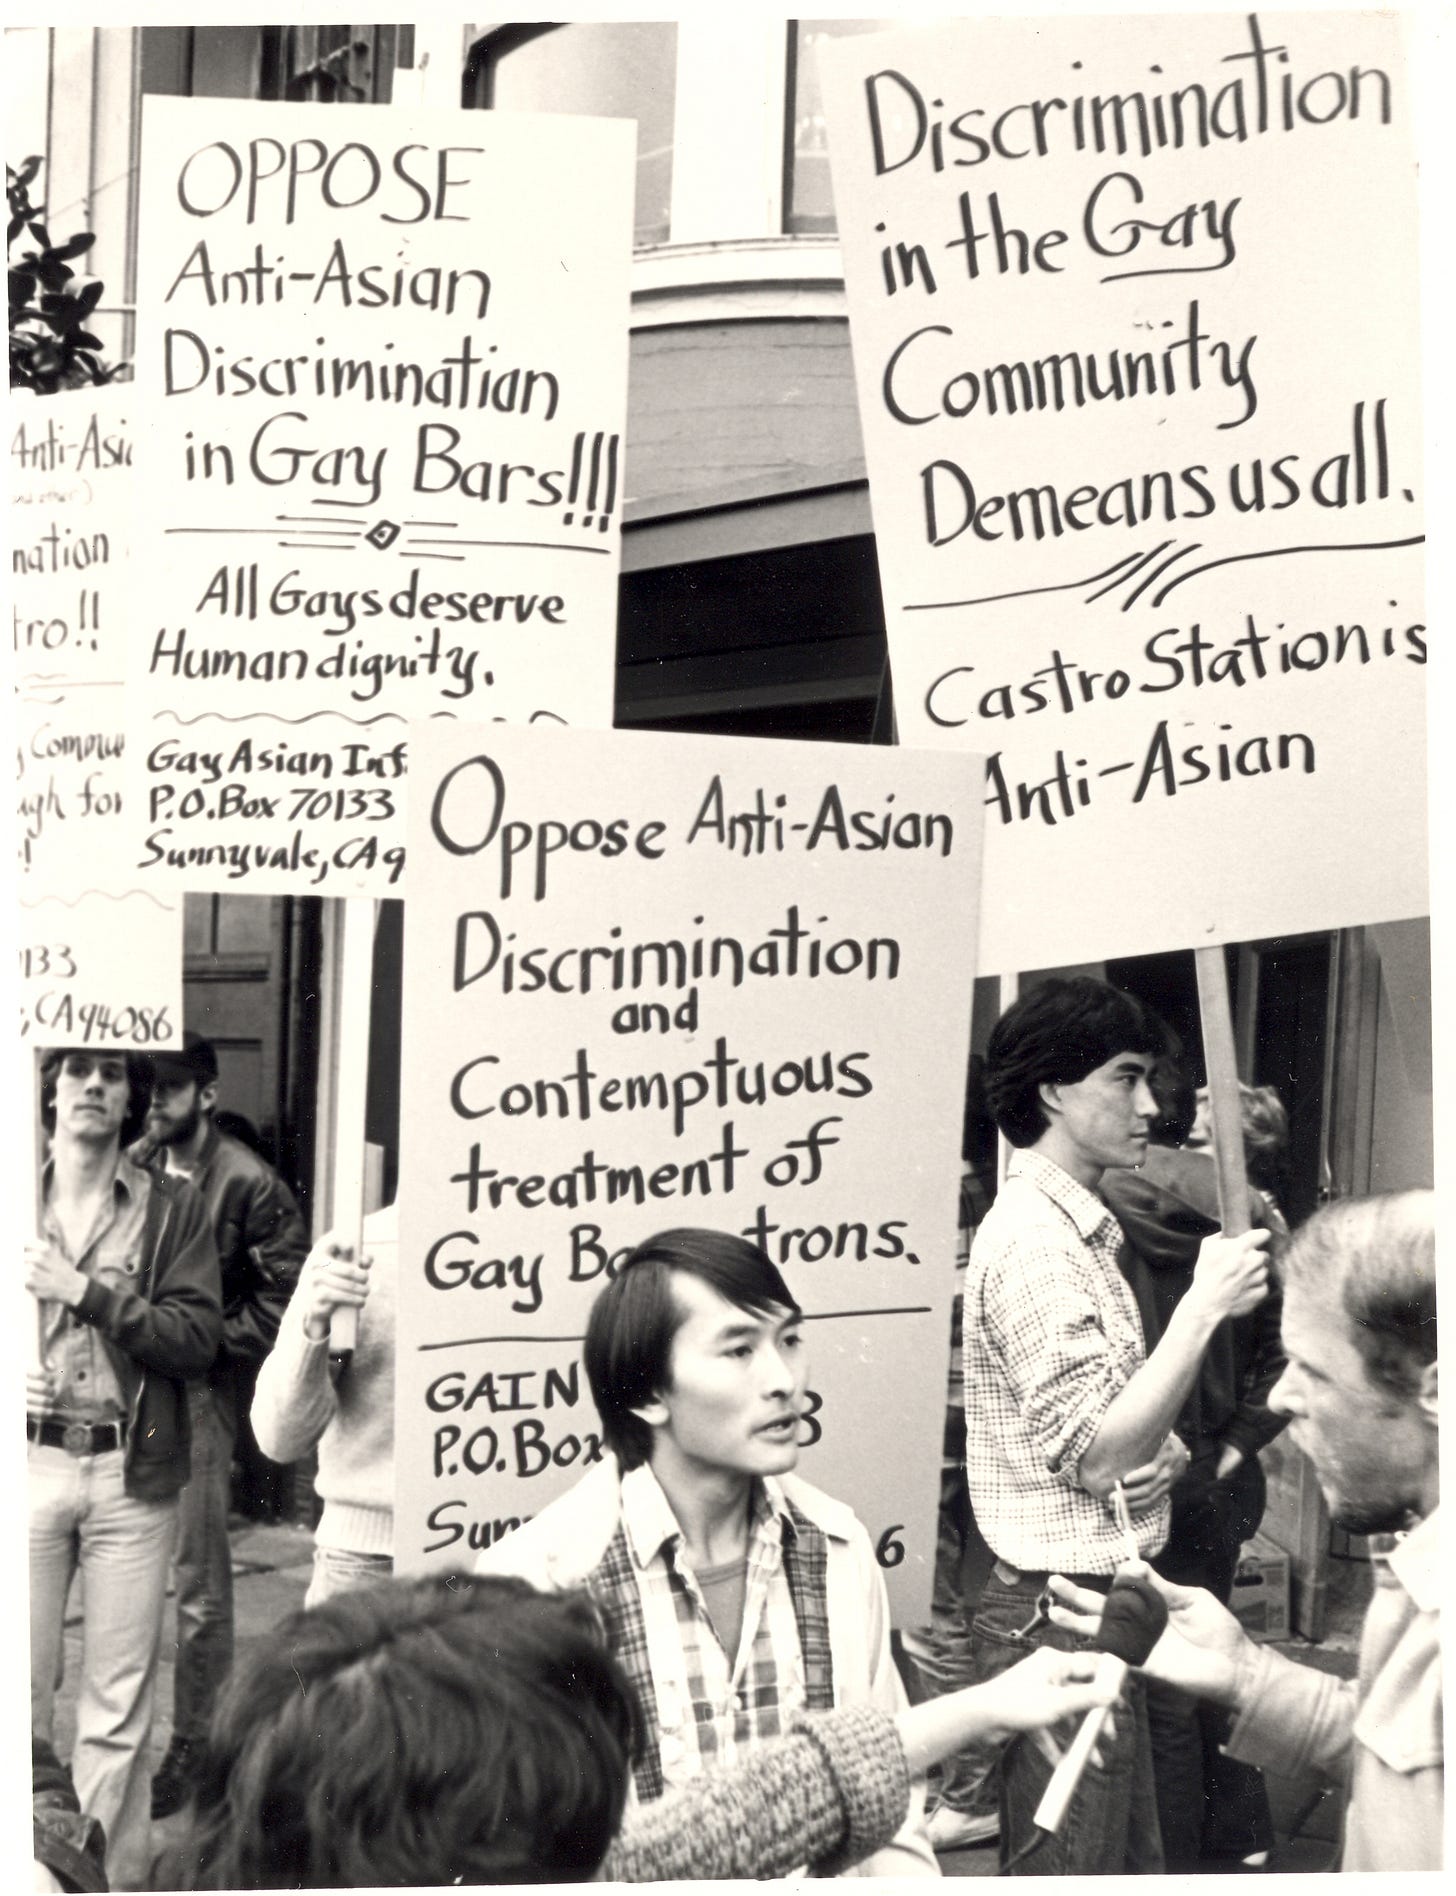 OPPOSE
Anti-Asian
Discrimination
in Gay Bars!!!
All Gays deserve
Human dignity.
Gay Asian Inf
P.O. Box 70133
Sunnyvale, CA 9
Discrimination
in the Gay
Community
Demeans us all.
Castro Station is
Anti-Asian
Oppose Anti-Asian
Discrimination
and
Contemptuous
treatment of
Gay Ba trons.
GAIN 3
P.O. Box
Sunn 6
Anti-Asia
nation
tro!!
Commu
gh for
!
133
, CA 94086